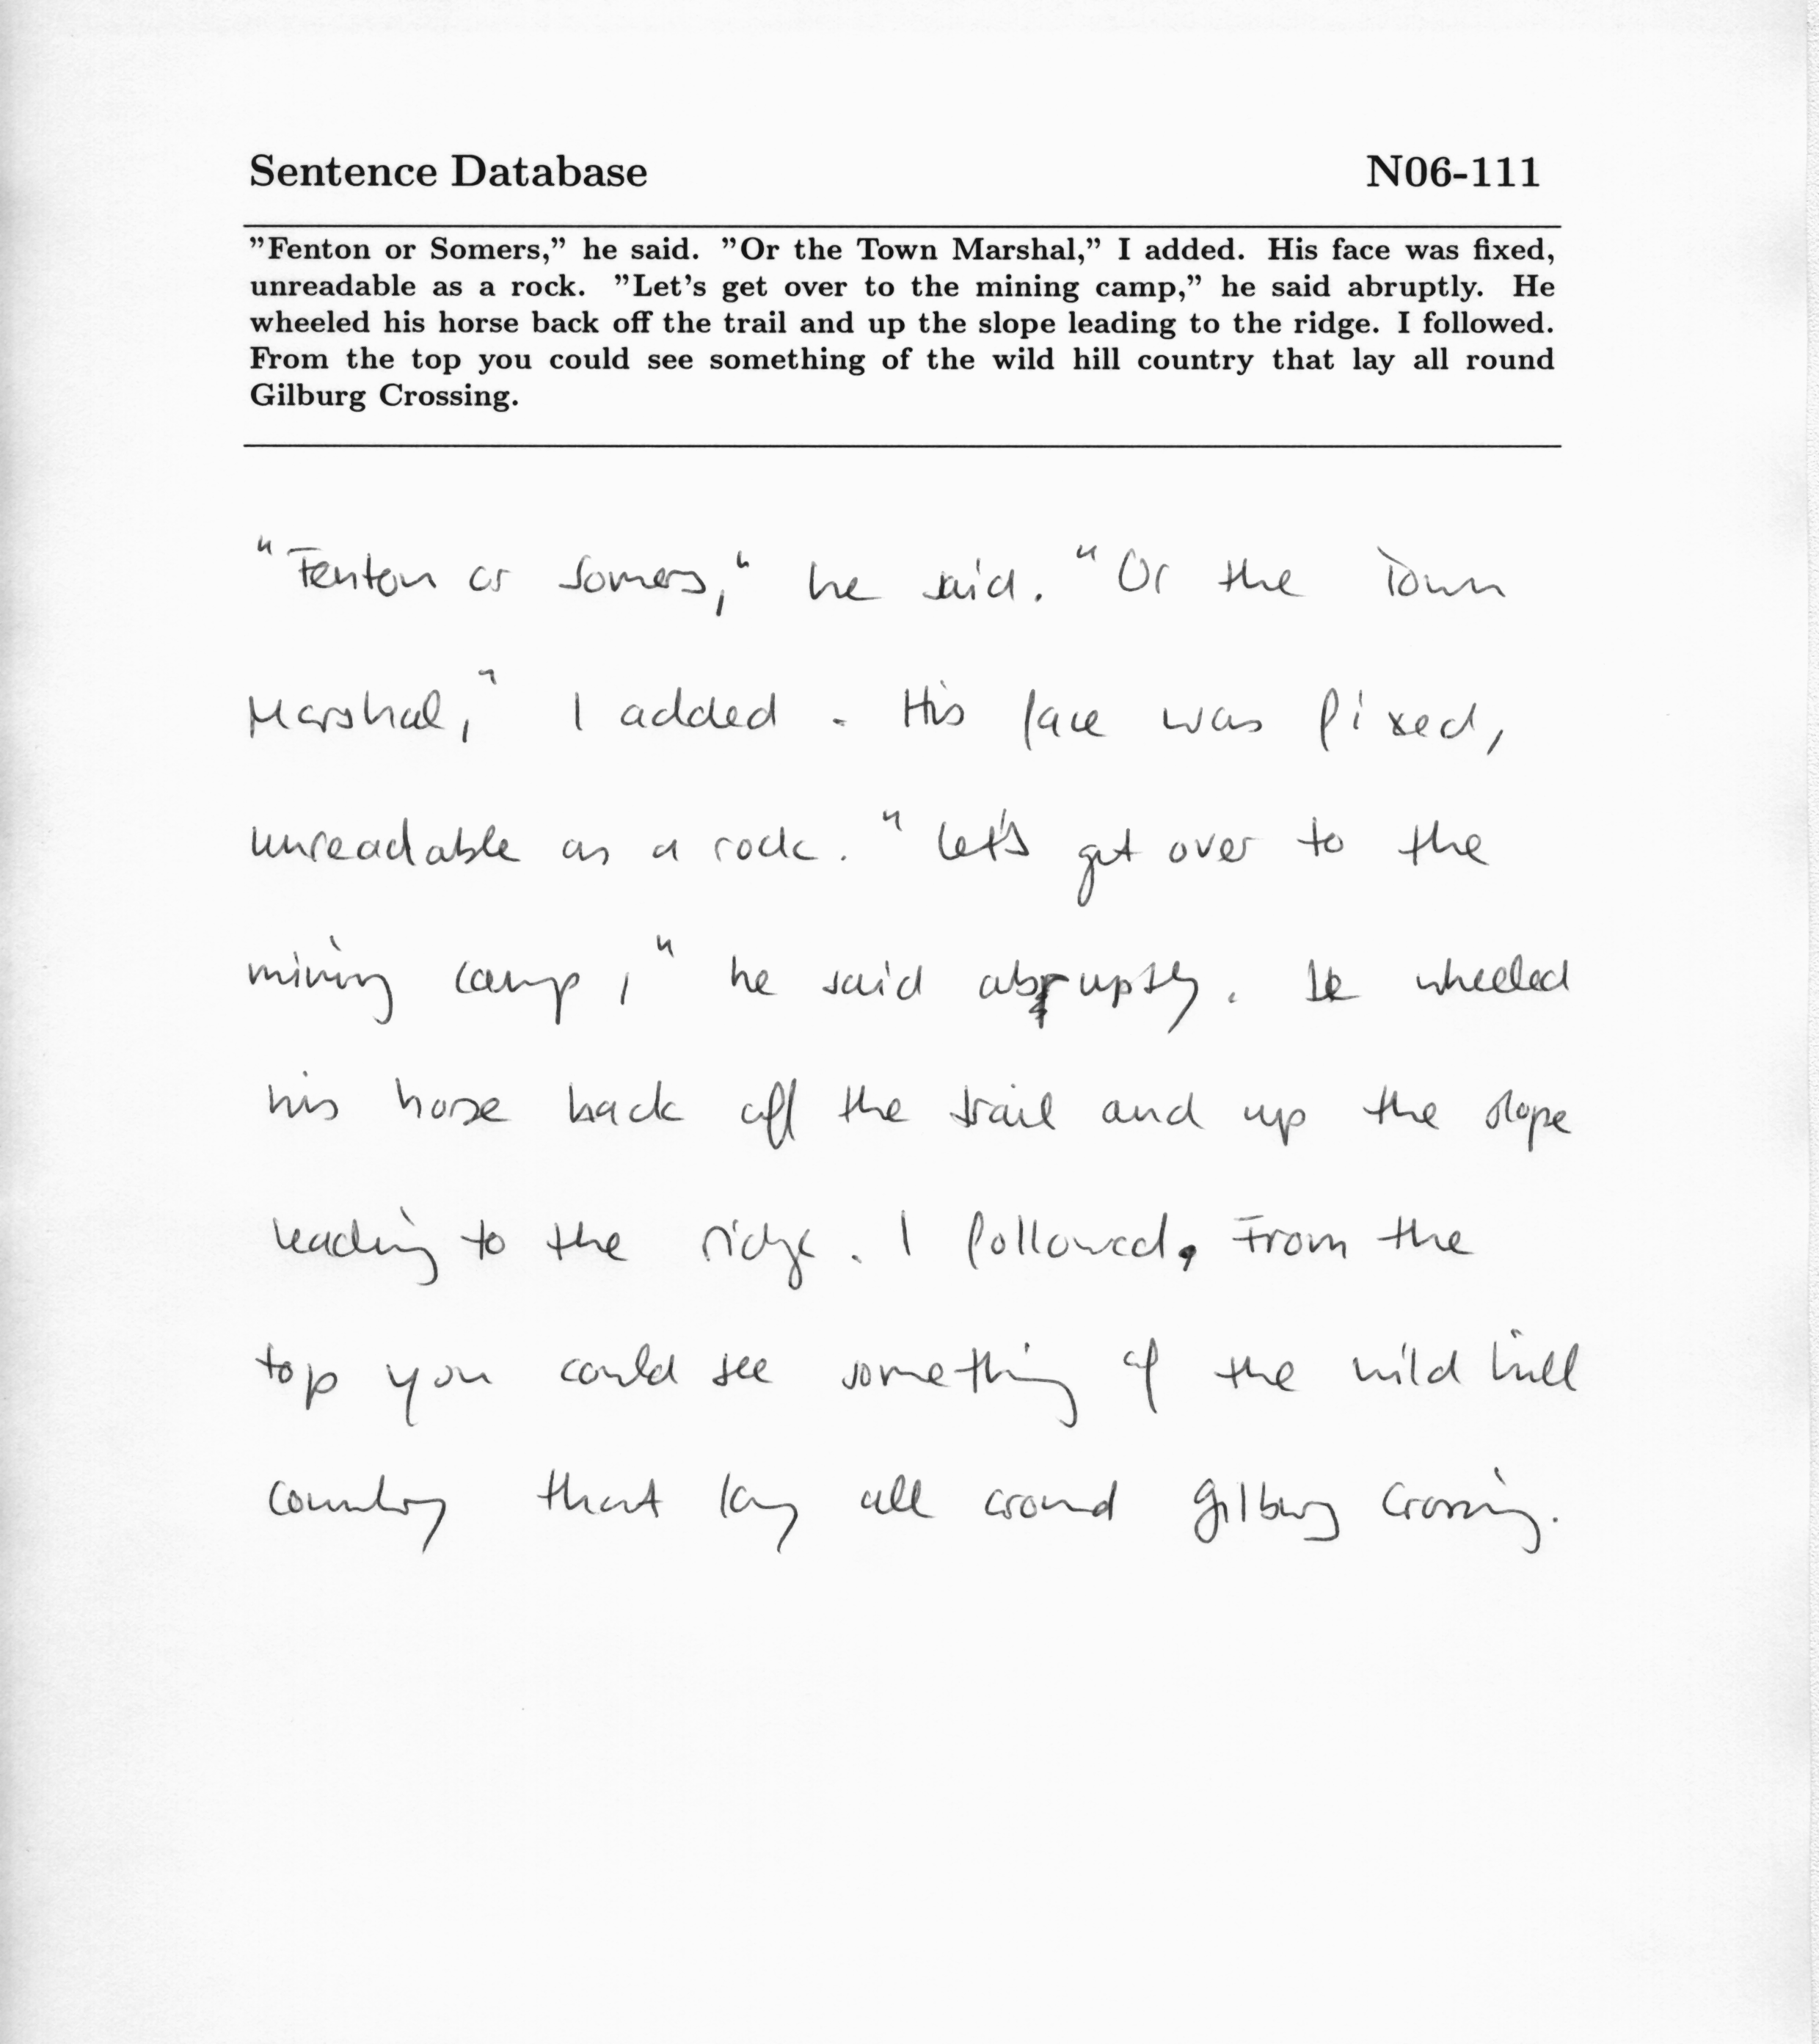 Sentence Database N06-111
”Fenton or Somers,” he said. ”Or the Town Marshal,” I added. His face was fixed,
unreadable as a rock. ”Let’s get over to the mining camp,” he said abruptly. He
wheeled his horse back off the trail and up the slope leading to the ridge. I followed.
From the top you could see something of the wild hill country that lay all round
Gilburg Crossing.
"Fenton or Somers," he said. "Or the Town
Marshal," I added. His face was fixed,
unreadable as a rock. "Let's get over to the
mining camp," he said abruptly. He wheeled
his horse back off the trail and up the slope
leading to the ridge. I followed. From the
top you could see something of the wild hill
country that lay all around Gilburg Crossing.